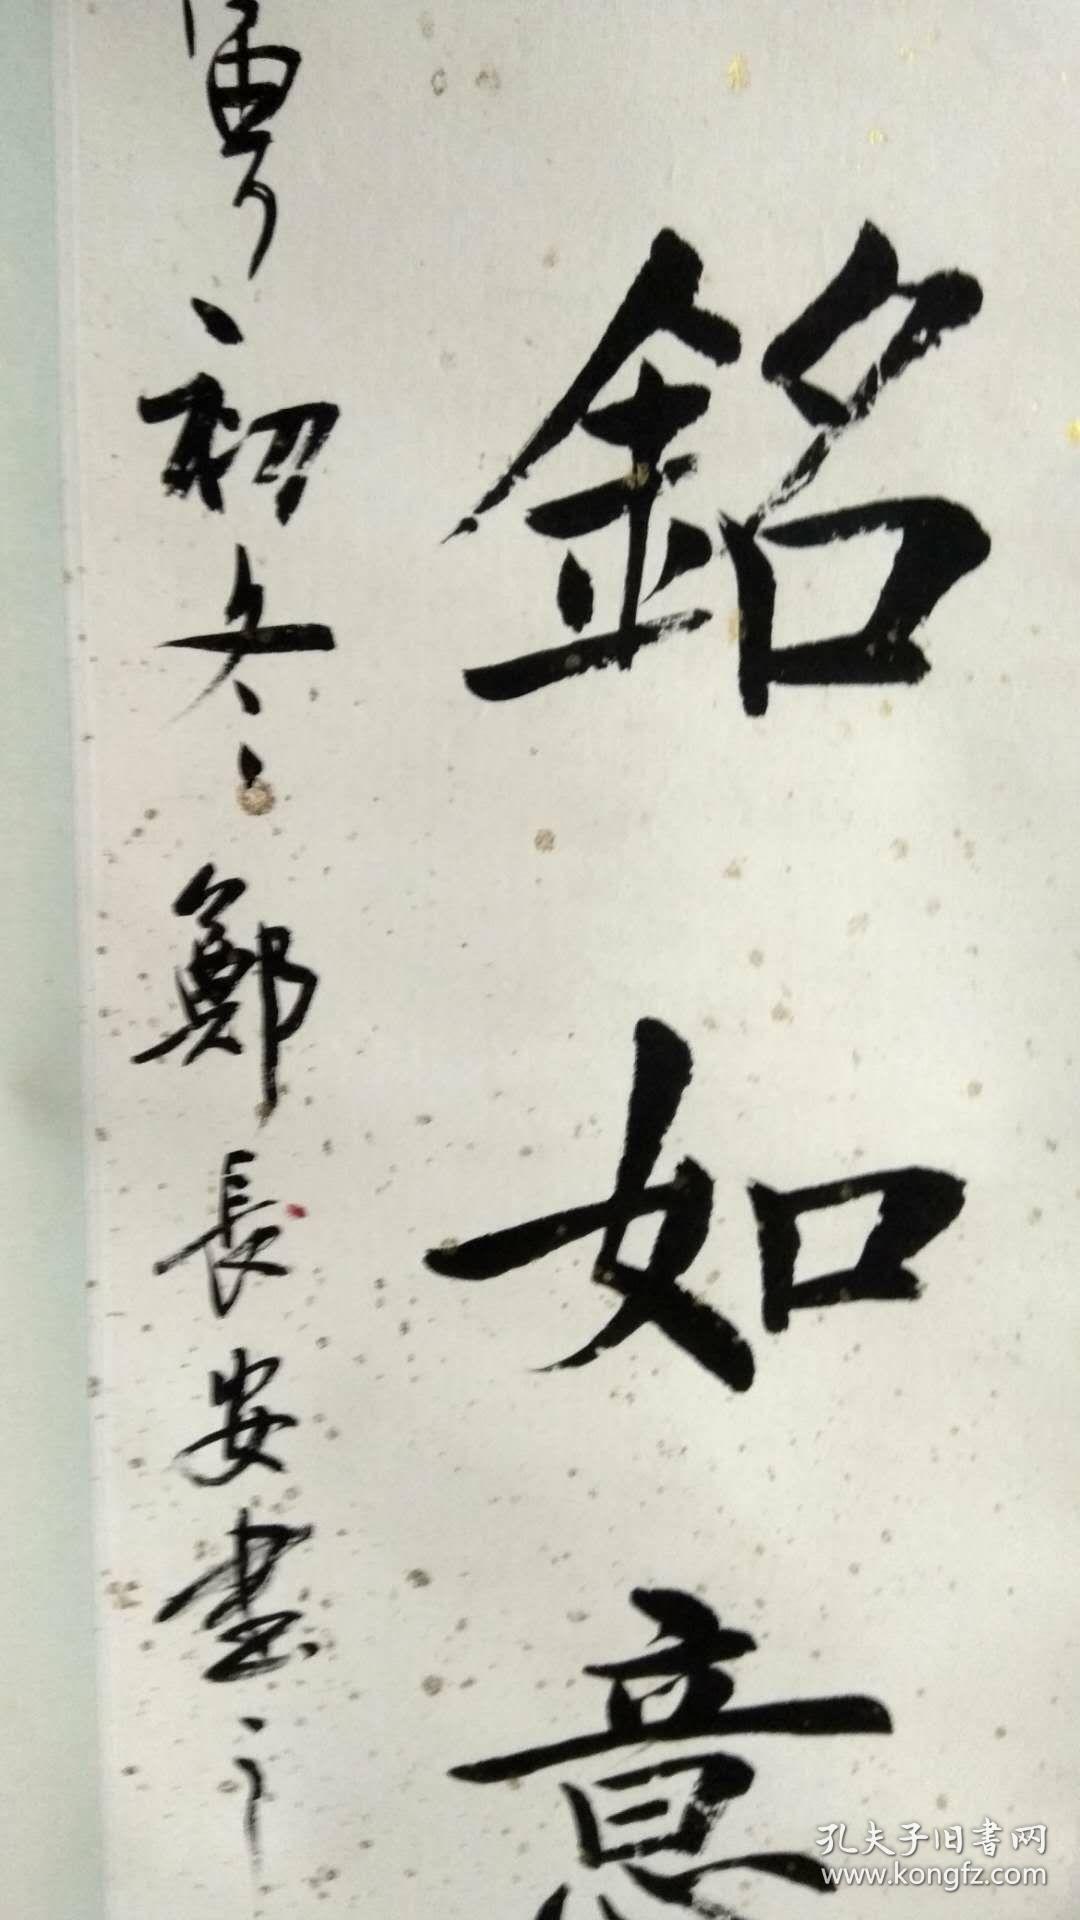 銘如意
寅初冬鄭長安書
孔夫子旧書网
www.kongfz.com